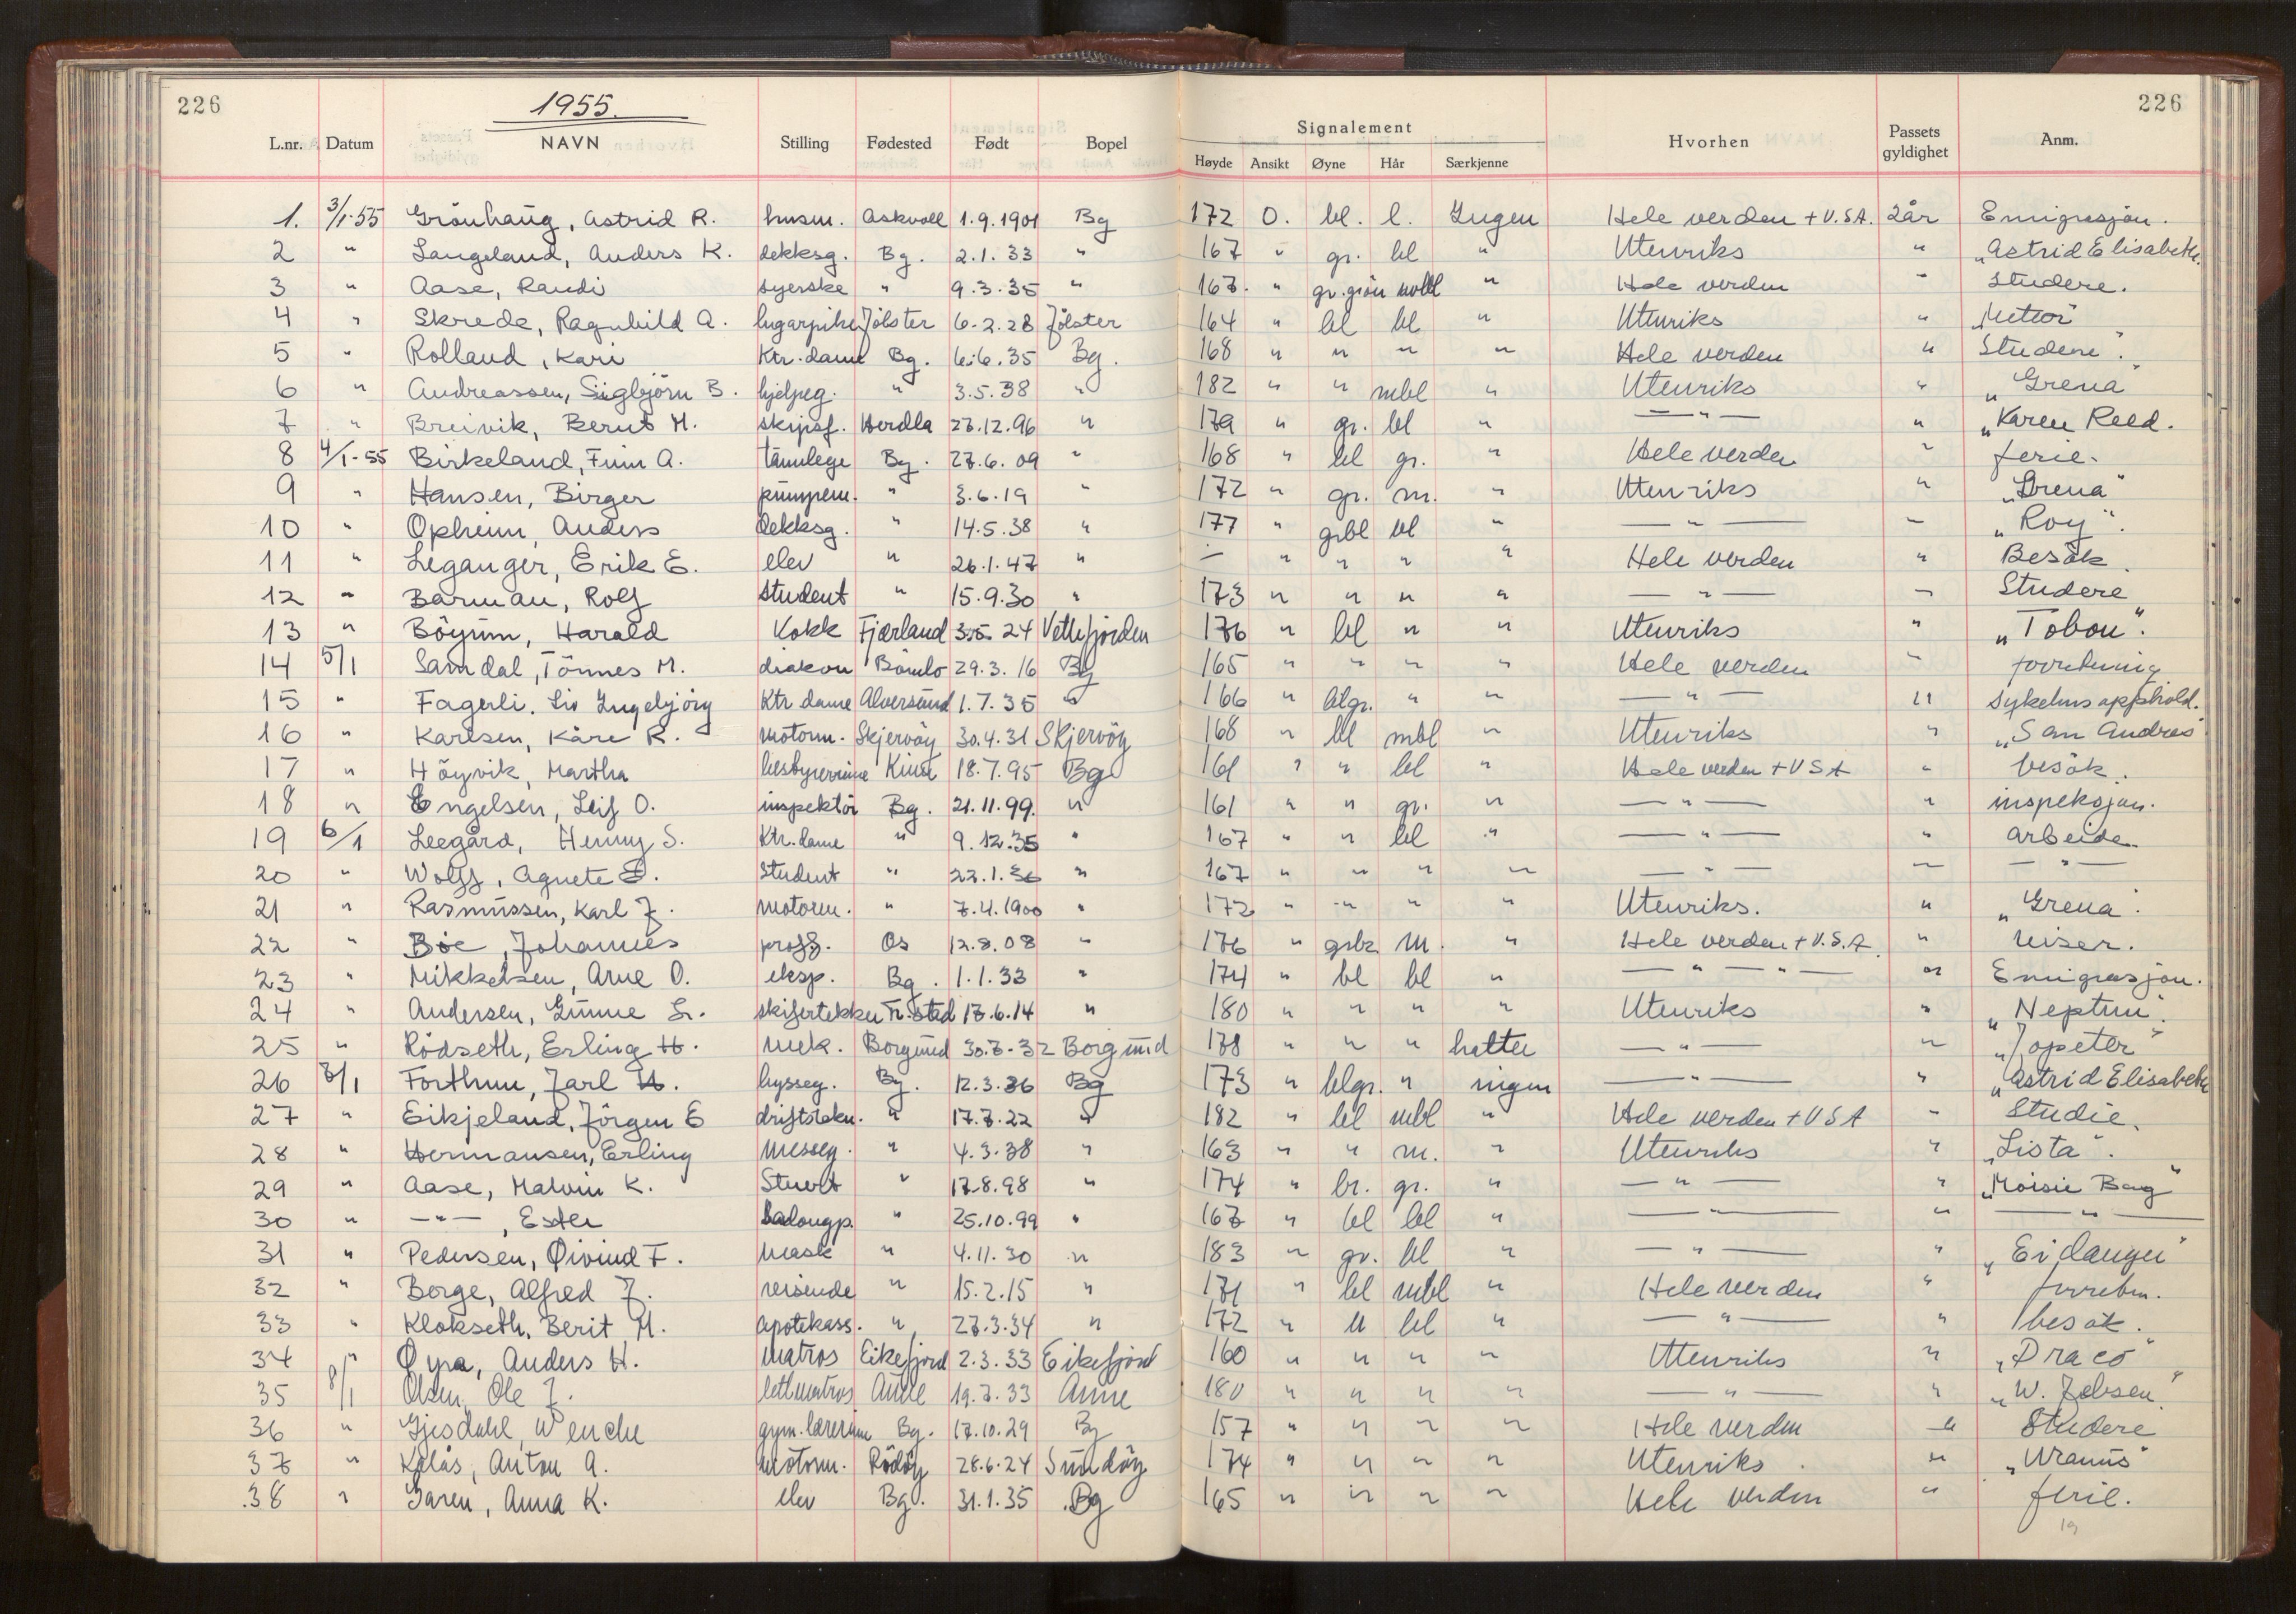 226 1955. 226
L.nr. Datum NAVN Stilling Fødested Født Bopel Signalement Hvorhen Passets gyldighet Anm.
Høyde Ansikt Øyne Hår Særkjenne
1. 3/1-55 Grönhaug, Astrid R. husm. Askvoll 1.9.1901 Bg 172 O. bl. l. Ingen Hele verden + U.S.A. 2år Emigrasjon.
2 " Langeland, Anders K. dekksg. Bg. 2.1.33 " 167 " gr. bl " Utenriks " "Astrid Elisabeth"
3 " Aase, Randi syerske " 9.3.35 " 167. " gr.grön mbl " Hele verden " Studere.
4 " Skrede, Ragnhild A. lugarpike Jölster 6.2.28 Jölster 164 " bl bl " Utenriks " "Meteor"
5 " Rolland, Kari Ktr.dame Bg. 6.6.35 Bg. 168 " " " " Hele verden " Studere.
6 " Andreassen, Sigbjörn B. hjelpeg. " 3.5.38 " 182 " " mbl " Utenriks " "Grena"
7 " Breivik, Bernt M. skipsf. Herdla 27.12.96 " 179 " gr. bl " — " — " "Karen Reed.
8 4/1-55 Birkeland, Finn A. tannlege Bg. 27.6.09 " 168 " bl gr. " Hele verden " ferie.
9 " Hansen, Birger pumpem. " 3.6.19 " 172 " gr. m. " Utenriks " "Grena"
10 " Opheim, Anders dekksg. " 14.5.38 " 177 " grbl bl " — " — " "Roy".
11 " Leganger, Erik E. elev " 26.1.47 " — " " " " Hele verden " Besök.
12 " Barman, Rolf student " 15.9.30 " 173 " " " " — " — " Studere
13 " Böyum, Harald Kokk Fjærland 3.5.24 Vetlefjorden 176 " bl " " Utenriks " "Tobon".
14 5/1 Samdal, Tönnes M. diakon Bömlo 29.3.16 Bg 165 " " " " Hele verden " forretning
15 " Fagerli. Liv Ingebjörg Ktr dame Alversund 1.7.35 " 166 " blgr. " " — " — " Sykehusopphold.
16 " Karlsen, Kåre R. motorm. Skjervöy 30.4.31 Skjervöy 168 " bl mbl " Utenriks " "San Andres"
17 " Höyvik, Martha Kinn 18.7.95 Bg 161 " " bl " Hele verden + USA " besök.
18 " Engelsen, Leif O. inspektör Bg. 21.11.99. " 161 " " gr. " — " — " inspeksjon.
19 6/1 Leegård, Henny S. Ktr.dame " 9.12.35 " 167 " " bl " — " — " arbeide
20 " Wolff, Agnete student " 22.1.36 " 167 " " " " — " — " — " —
21 " Rasmussen, Karl J. motorm. " 7.4.1900 " 172 " " " " Utenriks. " "Grena".
22 " Böe, Johannes Os 12.8.08 " 176 " grbr m. " Hele verden + U.S.A. " reiser.
23 " Mikkelsen, Arne O. eksp. Bg. 1.1.33 " 174 " bl bl " — " — " — " Emigrasjon.
24 " Andersen, Gunne skifertekker Fr.stad 17.6.14 " 180 " " " " Utenriks " "Neptun".
25 " Rödseth, Erling H. mek. Borgund 30.7.32 Borgund 178 " " " halter — " — " "Jopeter"
26 7/1 Forthun, Jarl H. bysseg. Bg. 12.3.36 Bg 173 " blgr. " ingen — " — " "Astrid Elisabeth
27 " Eikjeland, Jörgen E driftstekn. " 17.7.22 " 182 " bl mbl " Hele verden + USA " Studie.
28 " Hermansen, Erling messeg. " 4.3.38 " 163 " " m. " Utenriks " "Lista".
29 " Aase, Malvin K. Stuert " 17.8.98 " 174 " br. gr. " — " — " "Moisie Bay"
30 " — " —, Ester Salongp. " 25.10.99 " 167 " bl bl " — " — " — " —
31 " Pedersen, Øivind F. mask " 4.11.30 " 183 " gr. bl " — " — " "Eidanger"
32 " Borge, Alfred J. reisende " 15.2.15 " 171 " bl mbl " Hele verden " forretn.
33 " Klokseth, Berit M. apotekass. " 27.3.34 " 172 " " bl " — " — " besök.
34 " Øyra, Anders H. matros Eikefjord 2.3.33 Eikefjord 160 " " " " Utenriks " "Draco"
35 8/1 Olsen, Ole J. lettmatros Aure 19.7.33 Aure 180 " " " " — " — " "W. Jebsen".
36 " Gjesdahl, Wenche gym.lærerinne Bg. 17.10.29 Bg 157 " " " " Hele verden " Studere
37 " Kalås, Anton A. motorm. Rödöy 28.6.24 Sundöy 174 " " " " Utenriks " "Uranus"
38 " Garen, Anna K. elev Bg. 31.1.35 Bg 165 " " " " Hele verden " ferie.
19